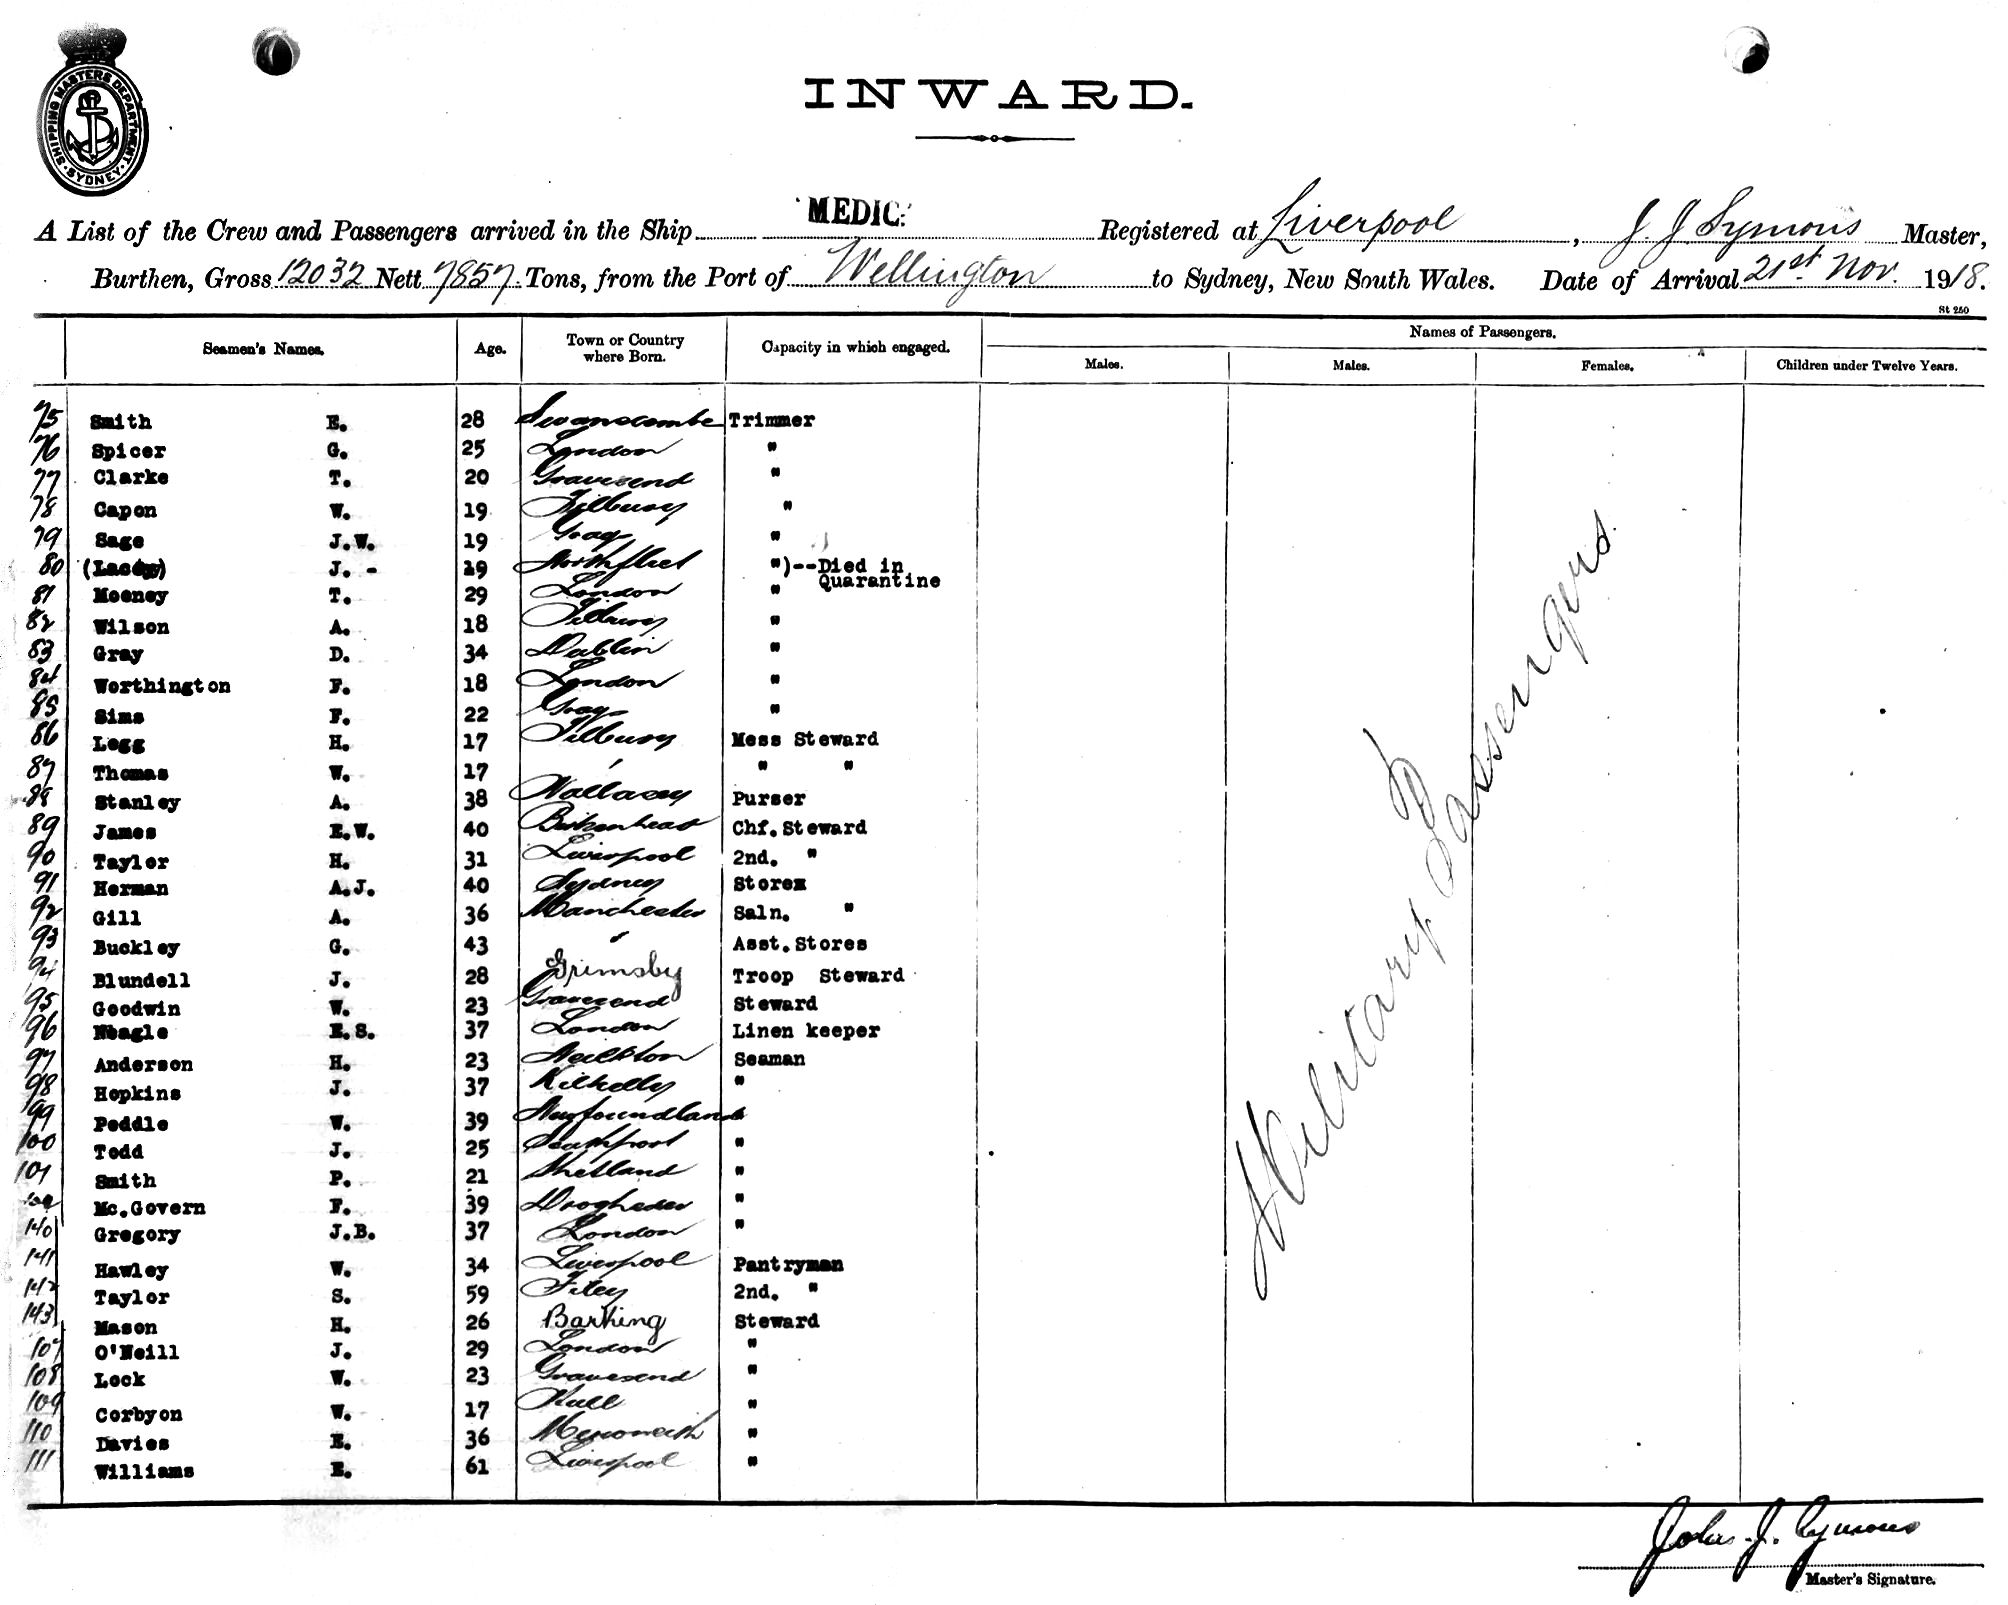 SHIPPING MASTERS DEPARTMENT
SYDNEY
INWARD.
A List of the Crew and Passengers arrived in the Ship MEDIC. Registered at Liverpool, J. J. Symons Master,
Burthen, Gross 12032 Nett 7857 Tons, from the Port of Wellington to Sydney, New South Wales. Date of Arrival 21st Nov. 1918.
St 250
Seamen's Names. Age. Town or Country where Born. Capacity in which engaged. Names of Passengers.
Males. Males. Females. Children under Twelve Years.
75 Smith E. 28 Swanscombe Trimmer
76 Spicer G. 25 London "
77 Clarke T. 20 Gravesend "
78 Capon W. 19 Tilbury "
79 Sage J.W. 19 Gray "
80 (Lacey) J. - 19 Northfleet ")--Died in
Quarantine
81 Mooney T. 29 London "
82 Wilson A. 18 Tilbury "
83 Gray D. 34 Dublin "
84 Worthington F. 18 London "
85 Sims F. 22 Gray "
86 Legg H. 17 Tilbury Mess Steward
87 Thomas W. 17 " " "
88 Stanley A. 38 Wallasey Purser
89 James E.W. 40 Birkenhead Chf. Steward
90 Taylor H. 31 Liverpool 2nd. "
91 Herman A.J. 40 Sydney Stores
92 Gill A. 36 Manchester Saln. "
93 Buckley G. 43 " Asst. Stores
94 Blundell J. 28 Grimsby Troop Steward
95 Goodwin W. 23 Gravesend Steward
96 Neagle E.S. 37 London Linen keeper
97 Anderson H. 23 Seaman
98 Hopkins J. 37 Kilkelly "
99 Peddle W. 39 Newfoundland "
100 Todd J. 25 Southport "
101 Smith P. 21 Shetland "
Mc.Govern F. 39 Drogheda "
140 Gregory J.B. 37 London "
141 Hawley W. 34 Liverpool Pantryman
142 Taylor S. 59 Filey 2nd. "
143 Mason H. 26 Barking Steward
107 O'Neill J. 29 London "
108 Lock W. 23 Gravesend "
109 Corbyon W. 17 Hull "
110 Davies E. 36 Merioneth "
111 Williams E. 61 Liverpool "
Military Passengers.
John J. Symons
Master's Signature.